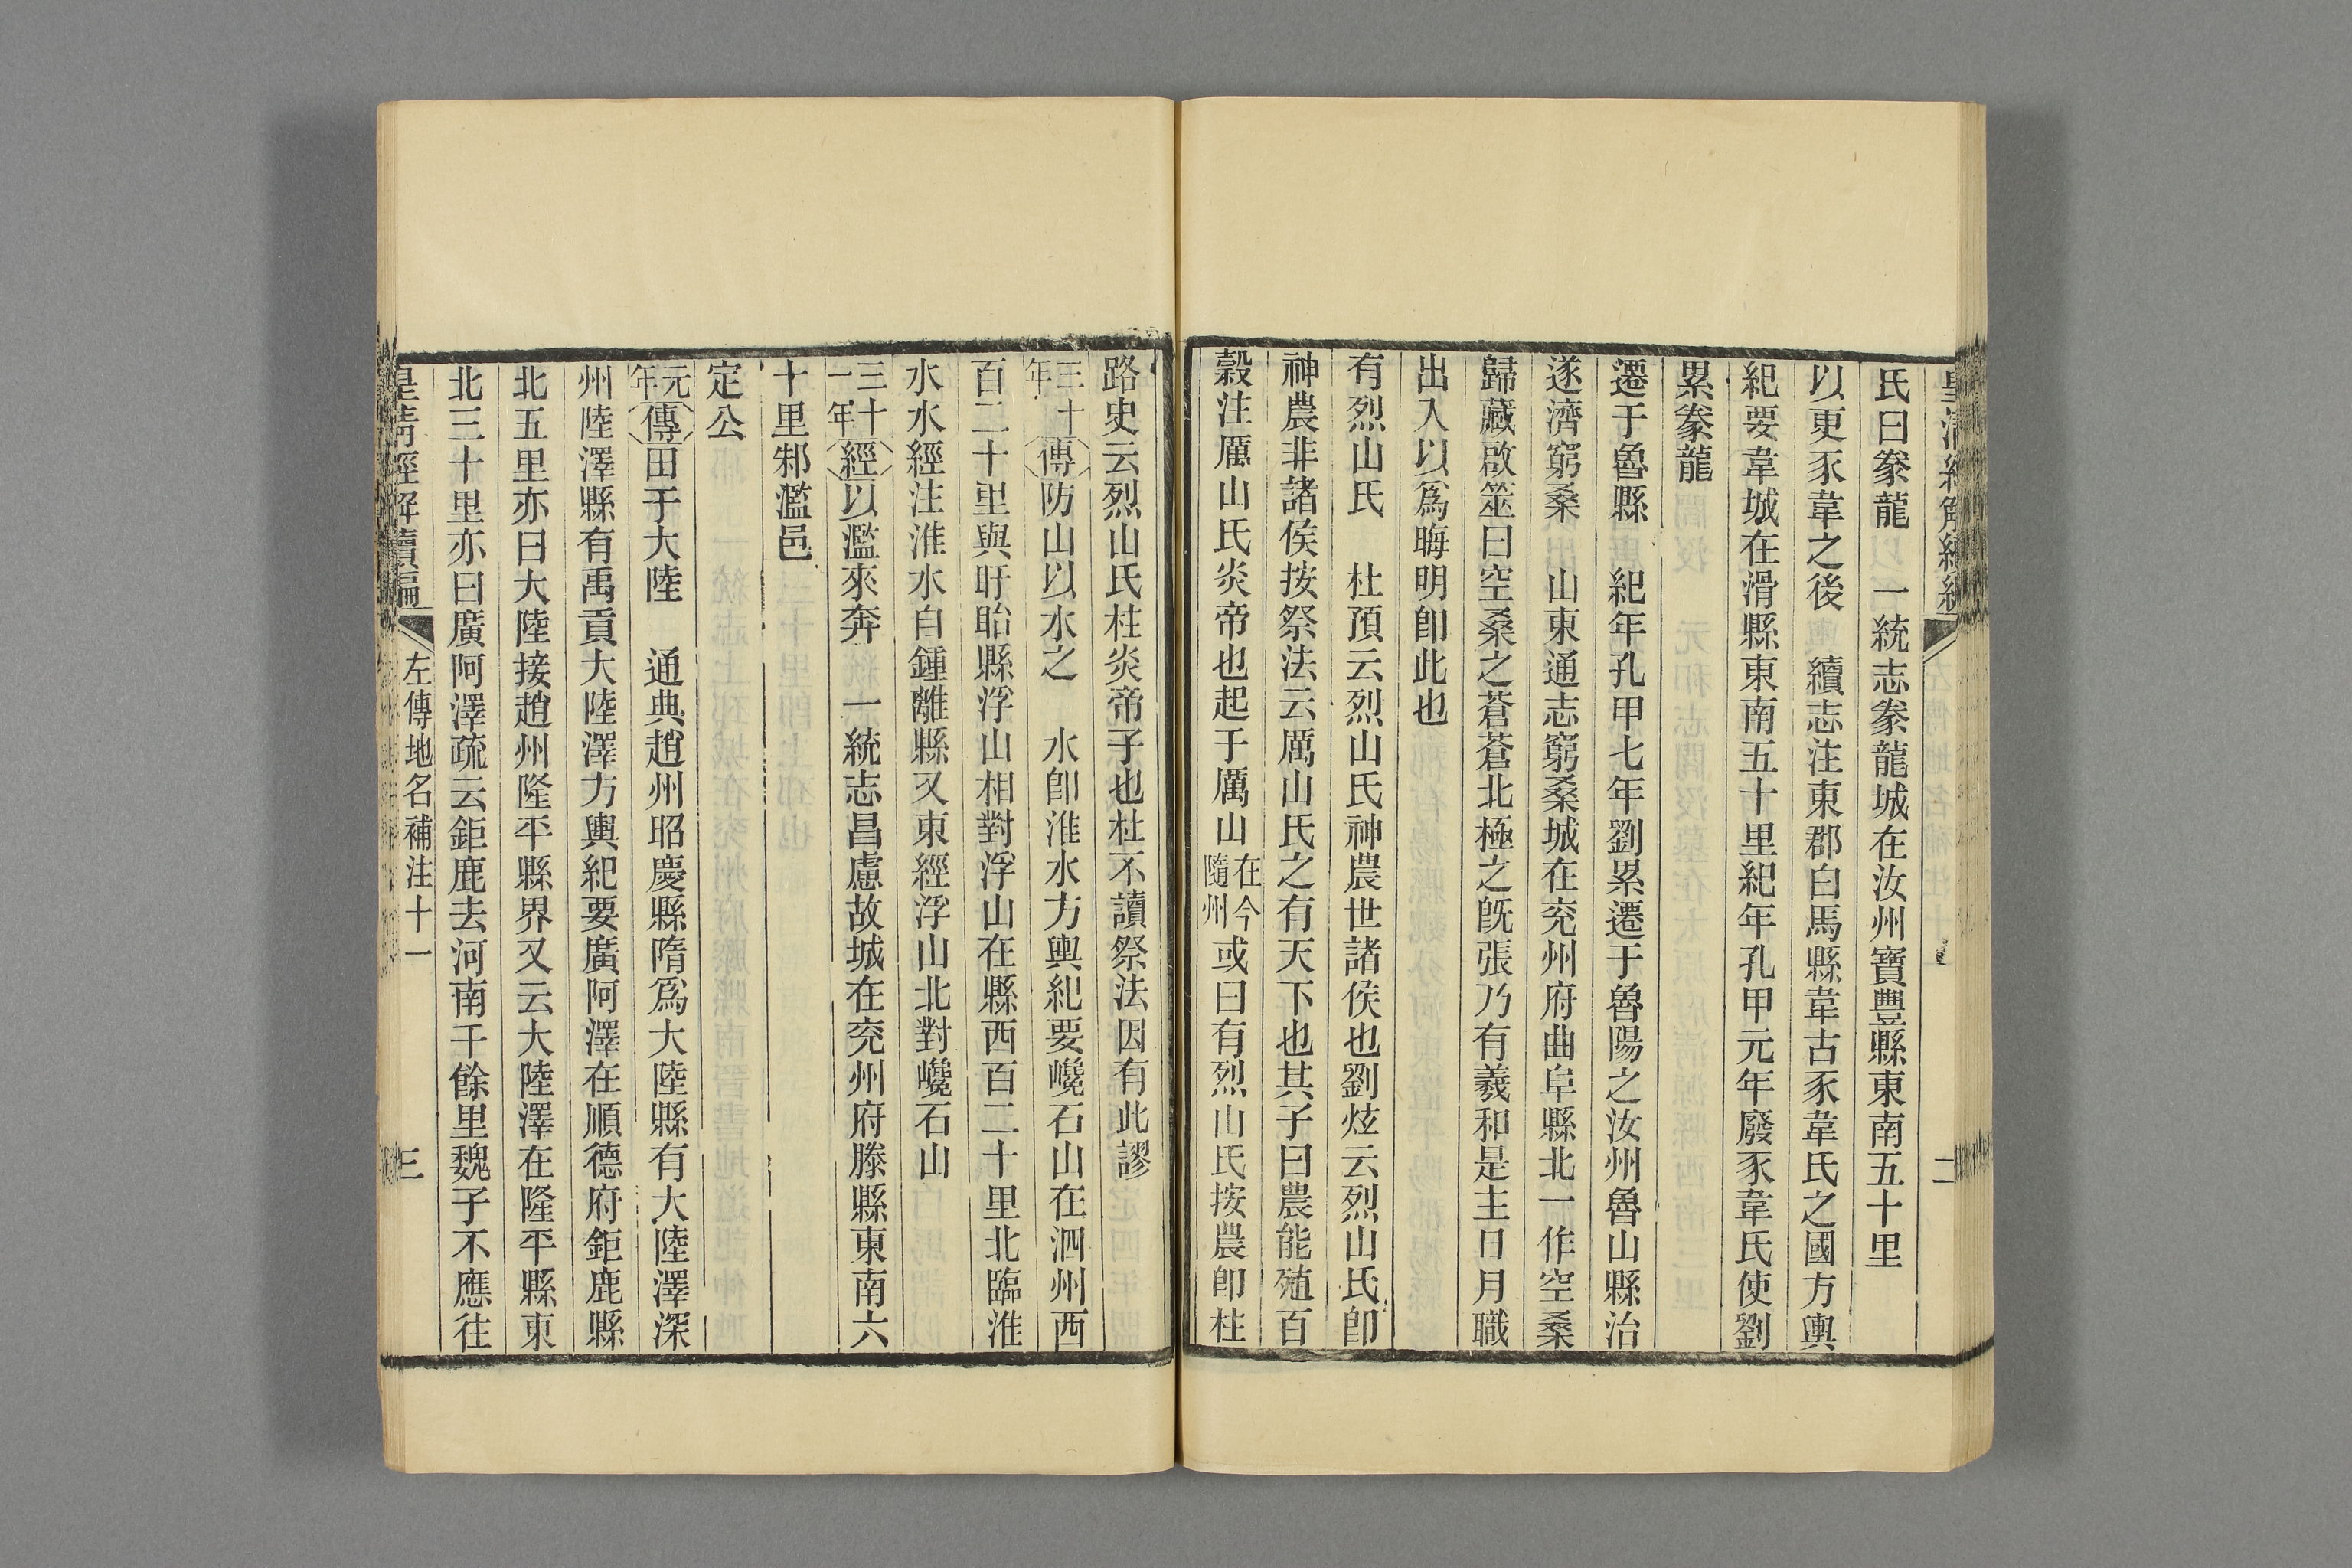 氏曰豢龍　一統志豢龍城在汝州寶豐縣東南五十里
以更豕韋之後　續志注東郡白馬縣韋古豕韋氏之國方輿
紀要韋城在滑縣東南五十里紀年孔甲元年廢豕韋氏使劉
累豢龍
遷于魯縣　紀年孔甲七年劉累遷于魯陽之汝州魯山縣治
遂濟窮桑　山東通志窮桑城在兖州府曲阜縣北一作空桑
歸藏啟筮曰空桑之蒼蒼北極之旣張乃有羲和是主日月職
出入以爲晦明卽此也
有烈山氏　杜預云烈山氏神農世諸侯也劉炫云烈山氏卽
神農非諸侯按祭法云厲山氏之有天下也其子曰農能殖百
穀注厲山氏炎帝也起于厲山在今隨州或曰有烈山氏按農卽柱
路史云烈山氏柱炎帝子也杜不讀祭法因有此謬
三十年傳防山以水之　水卽淮水方輿紀要巉石山在泗州西
百二十里與盱眙縣浮山相對浮山在縣西百二十里北臨淮
水水經注淮水自鍾離縣又東經浮山北對巉石山
三十一年經以濫來奔　一統志昌慮故城在兖州府滕縣東南六
十里邾濫邑
定公
元年傳田于大陸　通典趙州昭慶縣隋爲大陸縣有大陸澤深
州陸澤縣有禹貢大陸澤方輿紀要廣阿澤在順德府鉅鹿縣
北五里亦曰大陸接趙州隆平縣界又云大陸澤在隆平縣東
北三十里亦曰廣阿澤疏云鉅鹿去河南千餘里魏子不應往
皇清經解續編　左傳地名補注十一　三